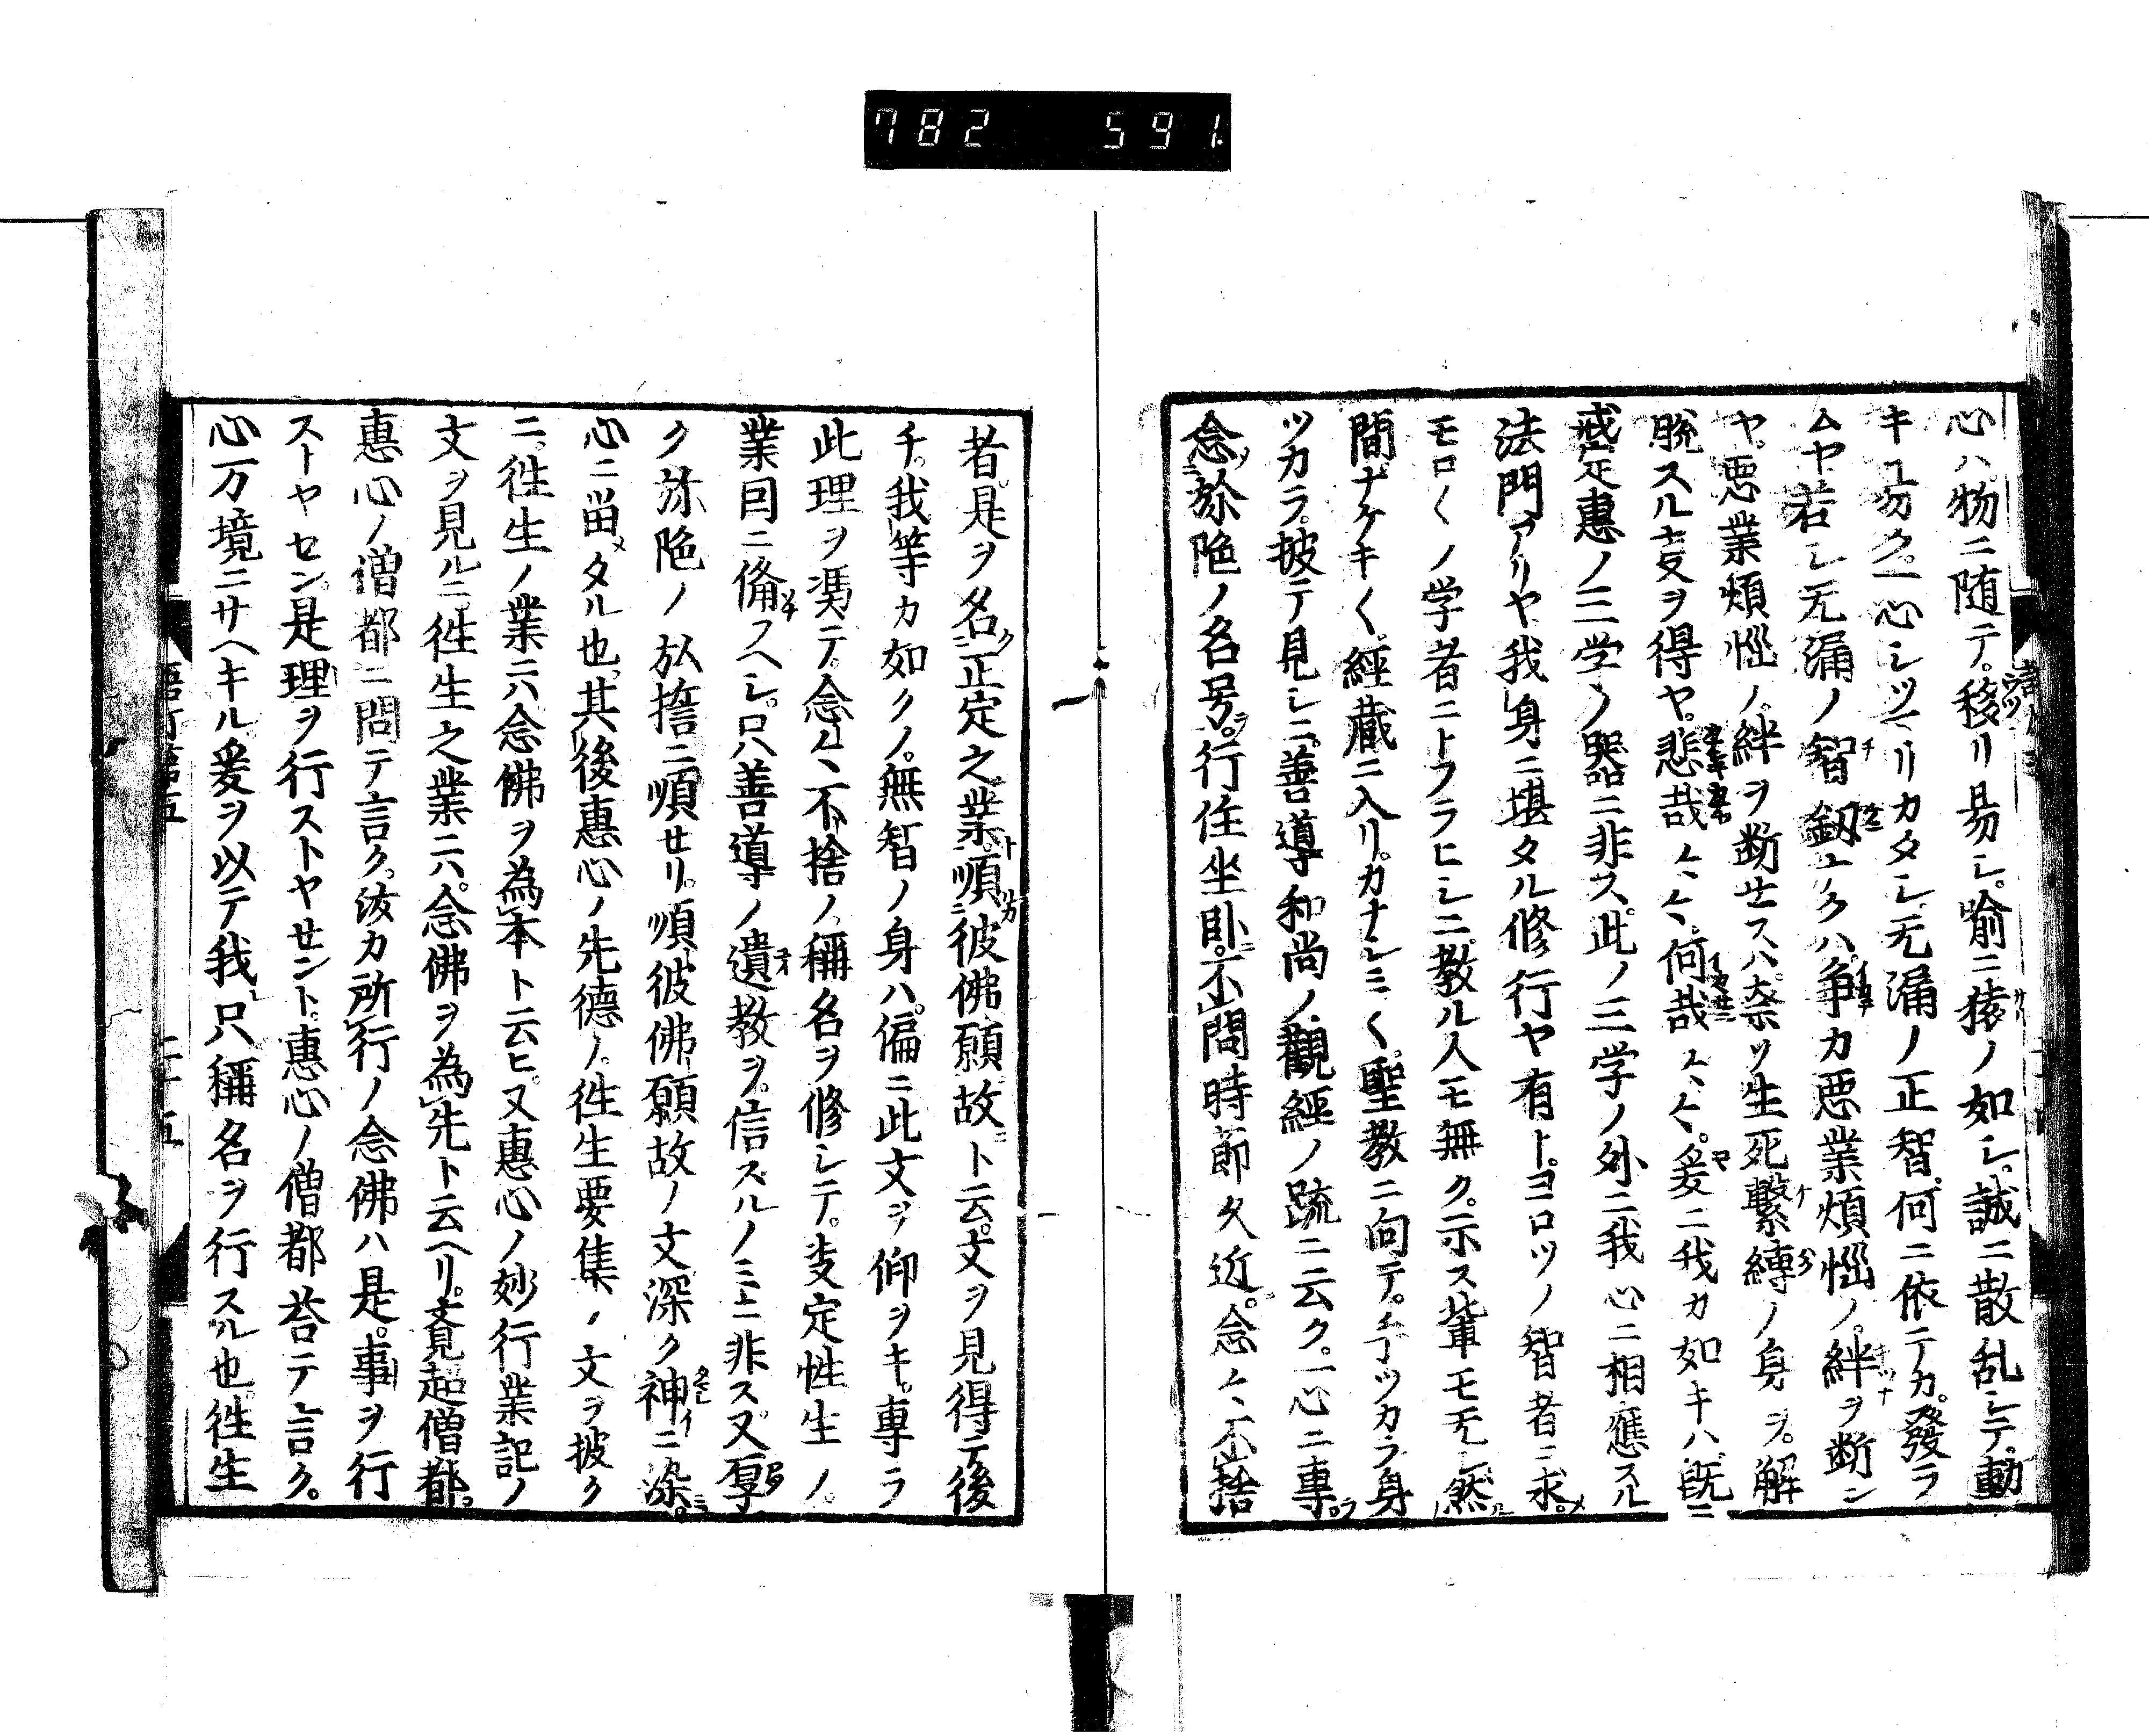 782 591.
心ハ物ニ随テ。移リ易シ。喩ニ猿ノ如シ。誠ニ散乱シテ。動
キヿ易ク。一心シツマリカタシ。无漏ノ正智。何ニ依テカ。發ラ
ムヤ。若シ无漏ノ智釼ナクハ。争カ悪業煩悩ノ。絆ヲ断ン
ヤ。悪業煩悩ノ。絆ヲ断せスハ。奈ッ生死繋縛ノ身ヲ。解
脱スル叓ヲ得ヤ。悲哉〻〻。何哉〻〻。爰ニ我カ如キハ。既ニ
戒定惠ノ三学ノ器ニ非ス。此ノ三学ノ外ニ我心ニ相應スル
法門アリヤ。我身ニ堪タル修行ヤ有ト。ヨロツノ智者ニ求メ。
モロ〱ノ学者ニトフラヒシニ。教ル人モ無ク。示ス軰モ无シ。然
間ナケキ〱經蔵ニ入リ。カナシミ〱聖教ニ向テ。手ツカラ身
ツカラ。披テ見シニ。善導和尚ノ觀經ノ䟽ニ云ク。一心ニ專ラ
念弥陁ノ名号。行住坐卧。不問時節久近。念〻不捨
者。是ヲ名正定之業。順彼佛願故ト云。文ヲ見得テ後
チ。我等カ如クノ。無智ノ身ハ。偏ニ此文ヲ仰ヲキ。專ラ
此理ヲ馮テ。念〻不捨ノ稱名ヲ修シテ。决定徃生ノ。
業因ニ備ヘシ。只善導ノ遺教ヲ。信スルノミニ非ス。又厚
ク弥陁ノ弘誓ニ順せリ。順彼佛願故ノ文深ク神ニ染。
心ニ畄タル也。其後惠心ノ先德ノ。徃生要集ノ文ヲ披ク
ニ。徃生ノ業ニハ念佛ヲ為本ト云ヒ。又惠心ノ妙行業記ノ
文ヲ見ルニ。徃生之業ニハ。念佛ヲ為先ト云ヘリ。覚超僧都。
惠心ノ僧都ニ問テ言ク。汝カ所行ノ念佛ハ是。事ヲ行
ストヤセン。是理ヲ行ストヤせント。惠心ノ僧都荅テ言ク。
心万境ニサヘキル爰ヲ以テ我只稱名ヲ行スル也。徃生